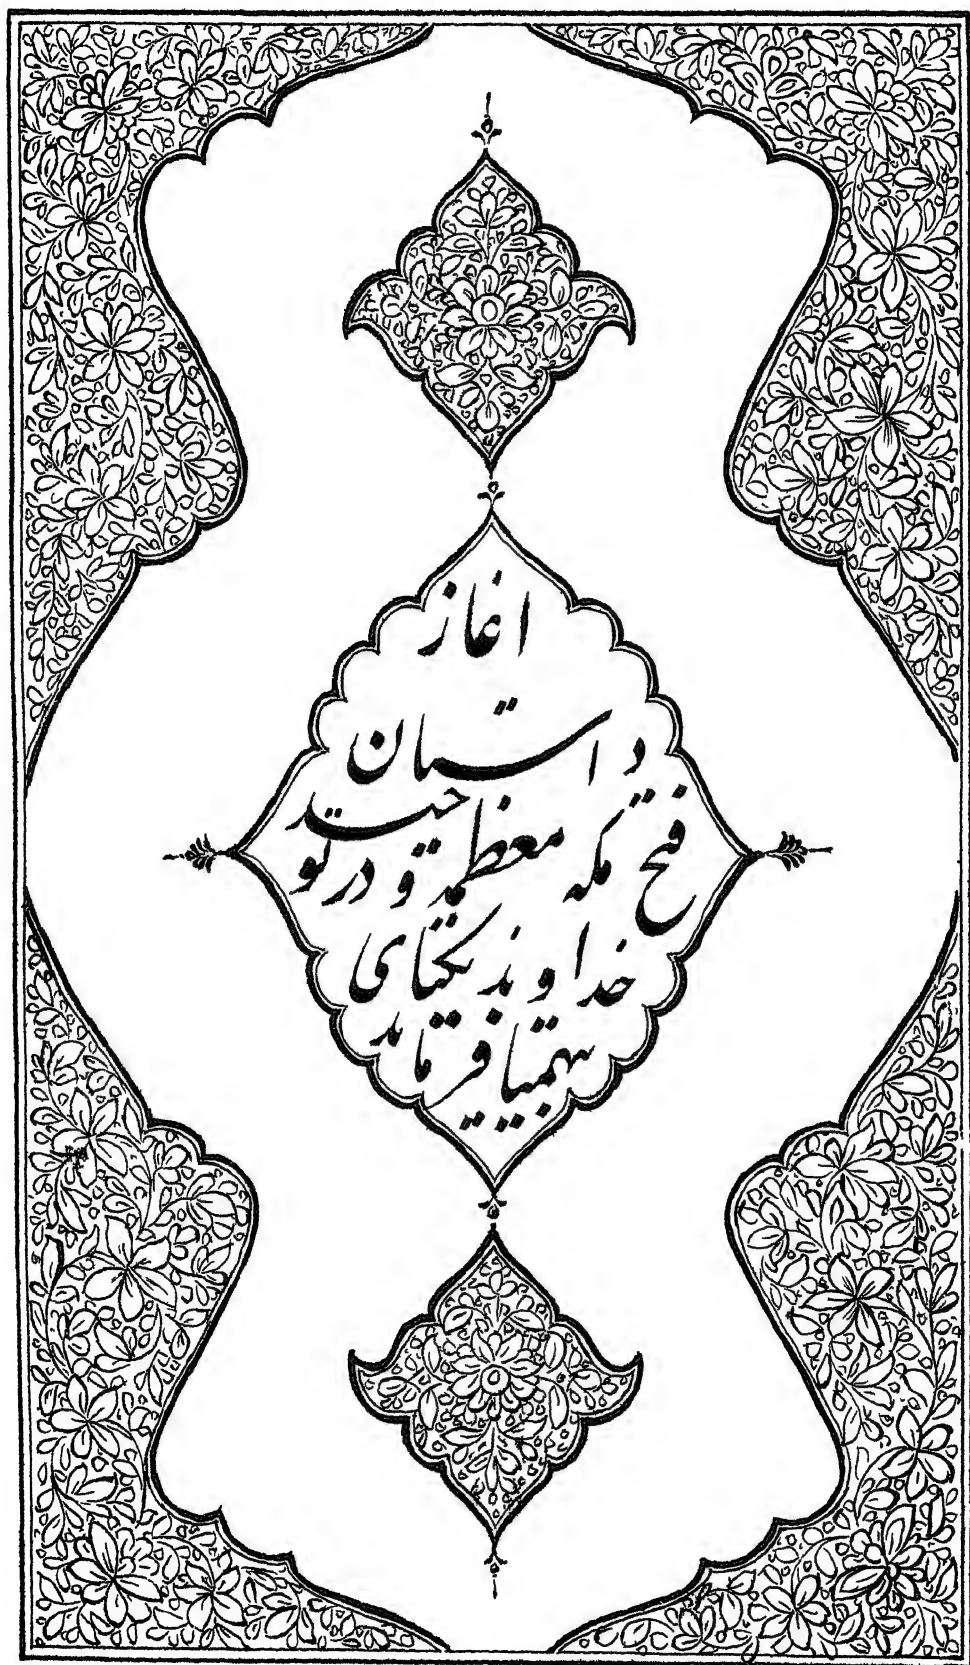 اغاز
داستان
فتح مکه معظمه و در توحید
خداوند یکتای
بیهمتا فرماید